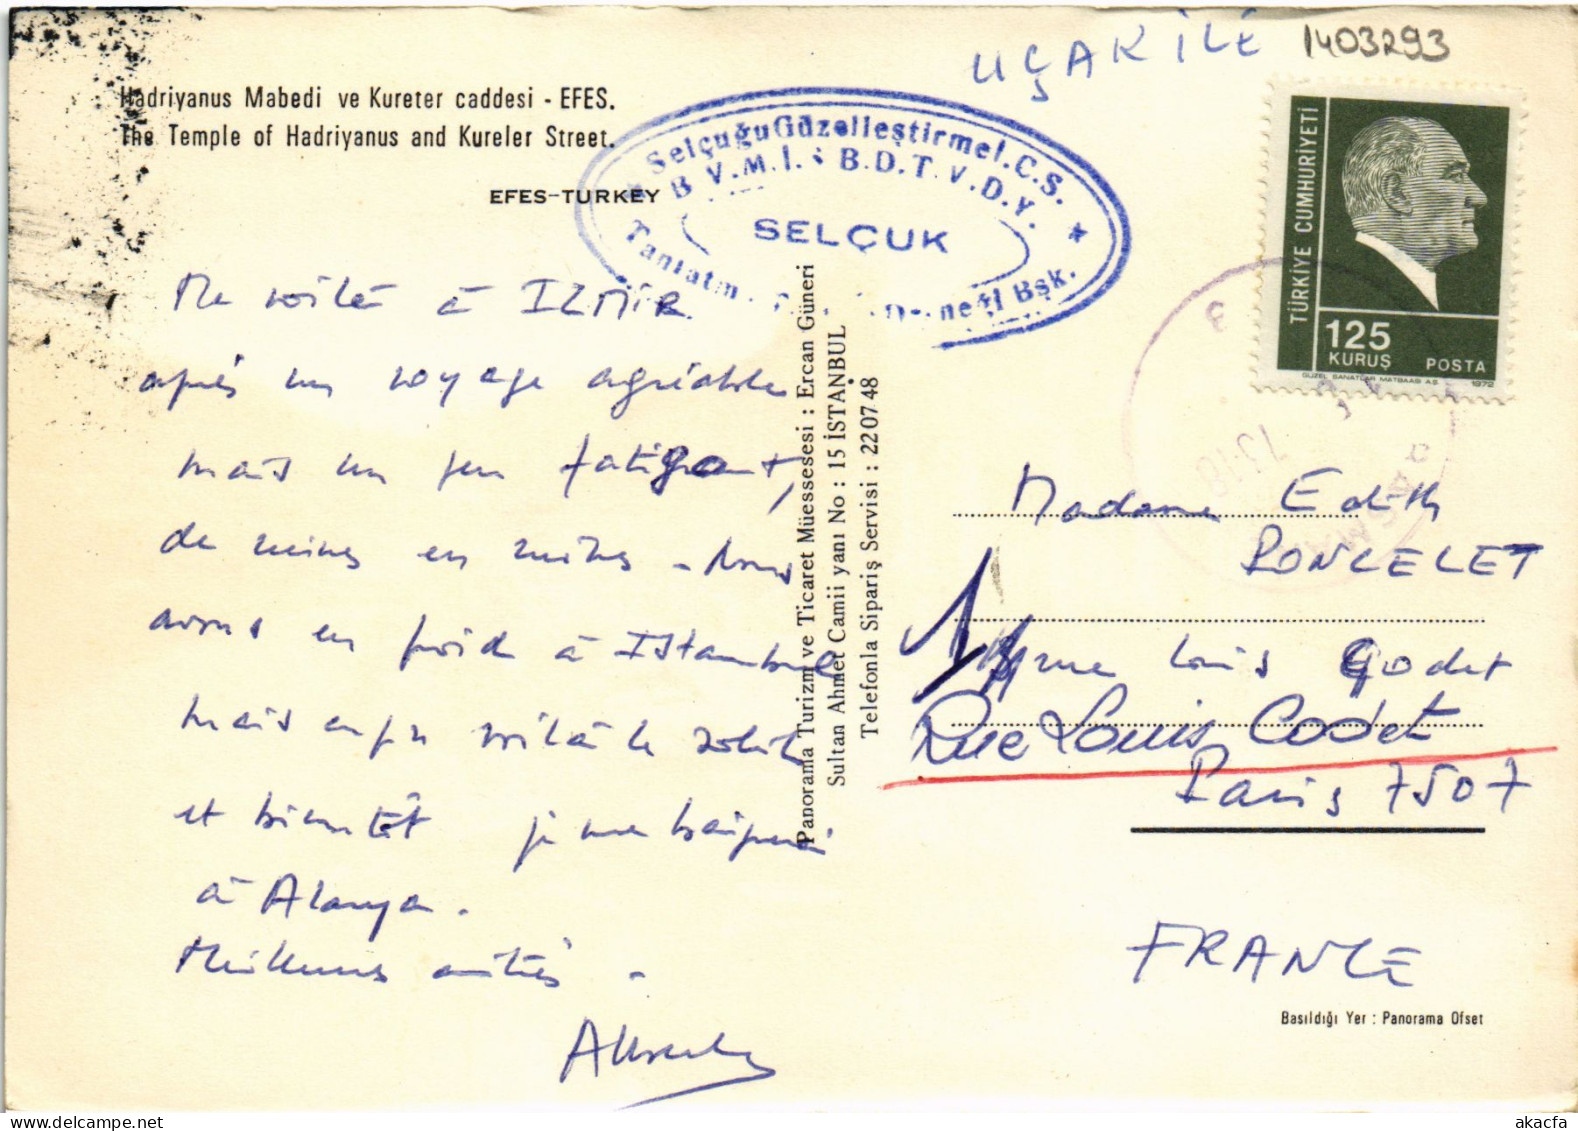 UÇAK İLE 1403293
Hadriyanus Mabedi ve Kureter caddesi - EFES.
The Temple of Hadriyanus and Kureler Street.
EFES-TURKEY
★ Selçuğu Güzelleştirme I.C.S. ★
B.V.M.İ. B.D.T.V.D.Y.
SELÇUK
Bşk.
TÜRKİYE CUMHURİYETİ
125
KURUŞ
POSTA
GÜZEL SANATLAR MATBAASI A.Ş. 1972
Me voilà à IZMIR
après un voyage agréable
mais un peu fatigant,
de ruines en ruines - Nous
avons eu froid à Istanbul
mais enfin voilà le soleil
et bientôt je me baignerai
à Alanya.
Meilleures amitiés -
Panorama Turizm ve Ticaret Müessesesi : Ercan Güneri
Sultan Ahmet Camii yanı No : 15 İSTANBUL
Telefonla Sipariş Servisi : 22 07 48
Madame Edith
PONCELET
rue Louis Godet
Rue Louis Codet
Paris 7507
FRANCE
Basıldığı Yer : Panorama Ofset
akacfa